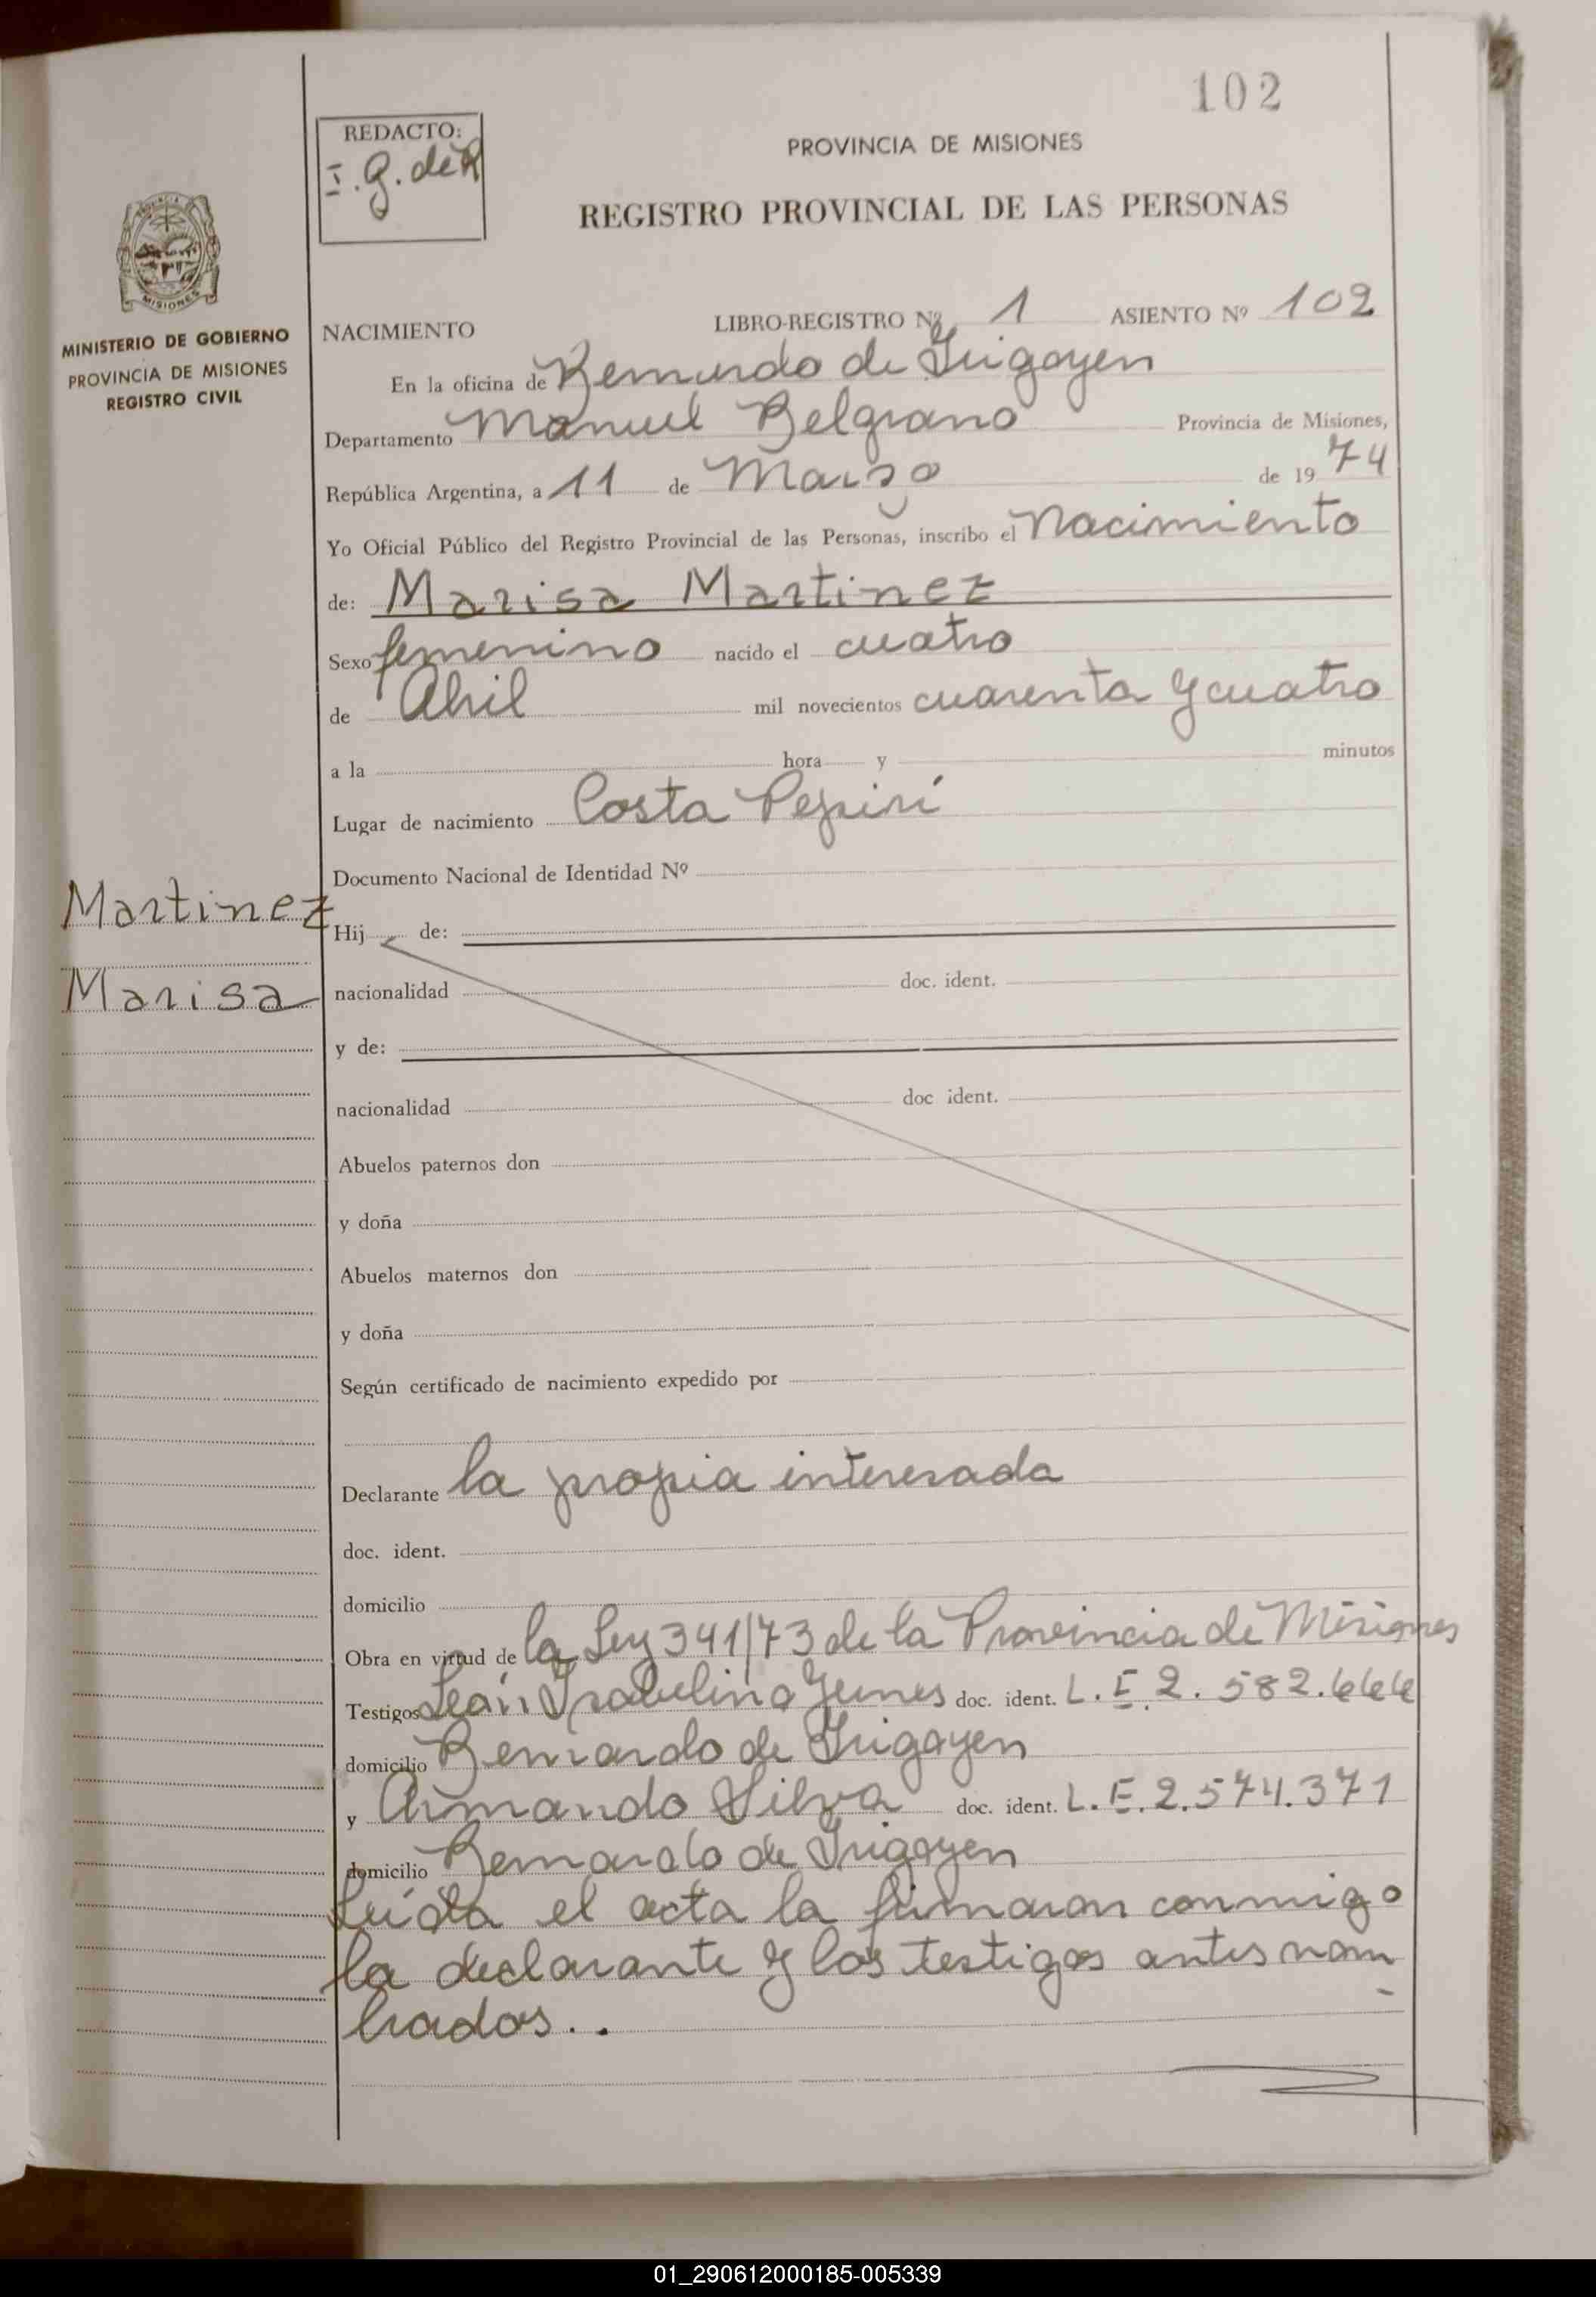 102
REDACTO:
I. G. de R
PROVINCIA DE MISIONES
REGISTRO PROVINCIAL DE LAS PERSONAS
MISIONES
MINISTERIO DE GOBIERNO
PROVINCIA DE MISIONES
REGISTRO CIVIL
NACIMIENTO LIBRO-REGISTRO Nº 1 ASIENTO Nº 102
En la oficina de Bernardo de Irigoyen
Departamento Manuel Belgrano Provincia de Misiones,
República Argentina, a 11 de Marzo de 1974
Yo Oficial Público del Registro Provincial de las Personas, inscribo el Nacimiento
de: Marisa Martinez
Sexo femenino nacido el cuatro
de Abril mil novecientos cuarenta y cuatro
a la hora y minutos
Lugar de nacimiento Costa Pepirí
Documento Nacional de Identidad Nº
Martinez
Hij de:
Marisa
nacionalidad doc. ident.
y de:
nacionalidad doc ident.
Abuelos paternos don
y doña
Abuelos maternos don
y doña
Según certificado de nacimiento expedido por
Declarante la propia interesada
doc. ident.
domicilio
Obra en virtud de la Ley 341/73 de la Provincia de Misiones
Testigos doc. ident. L. E. 2. 582.666
domicilio Bernardo de Irigoyen
y Armando Silva doc. ident. L. E. 2.574.371
domicilio Bernardo de Irigoyen
Leída el acta la firmaron conmigo
la declarante y los testigos antes nom
brados..
01_290612000185-005339